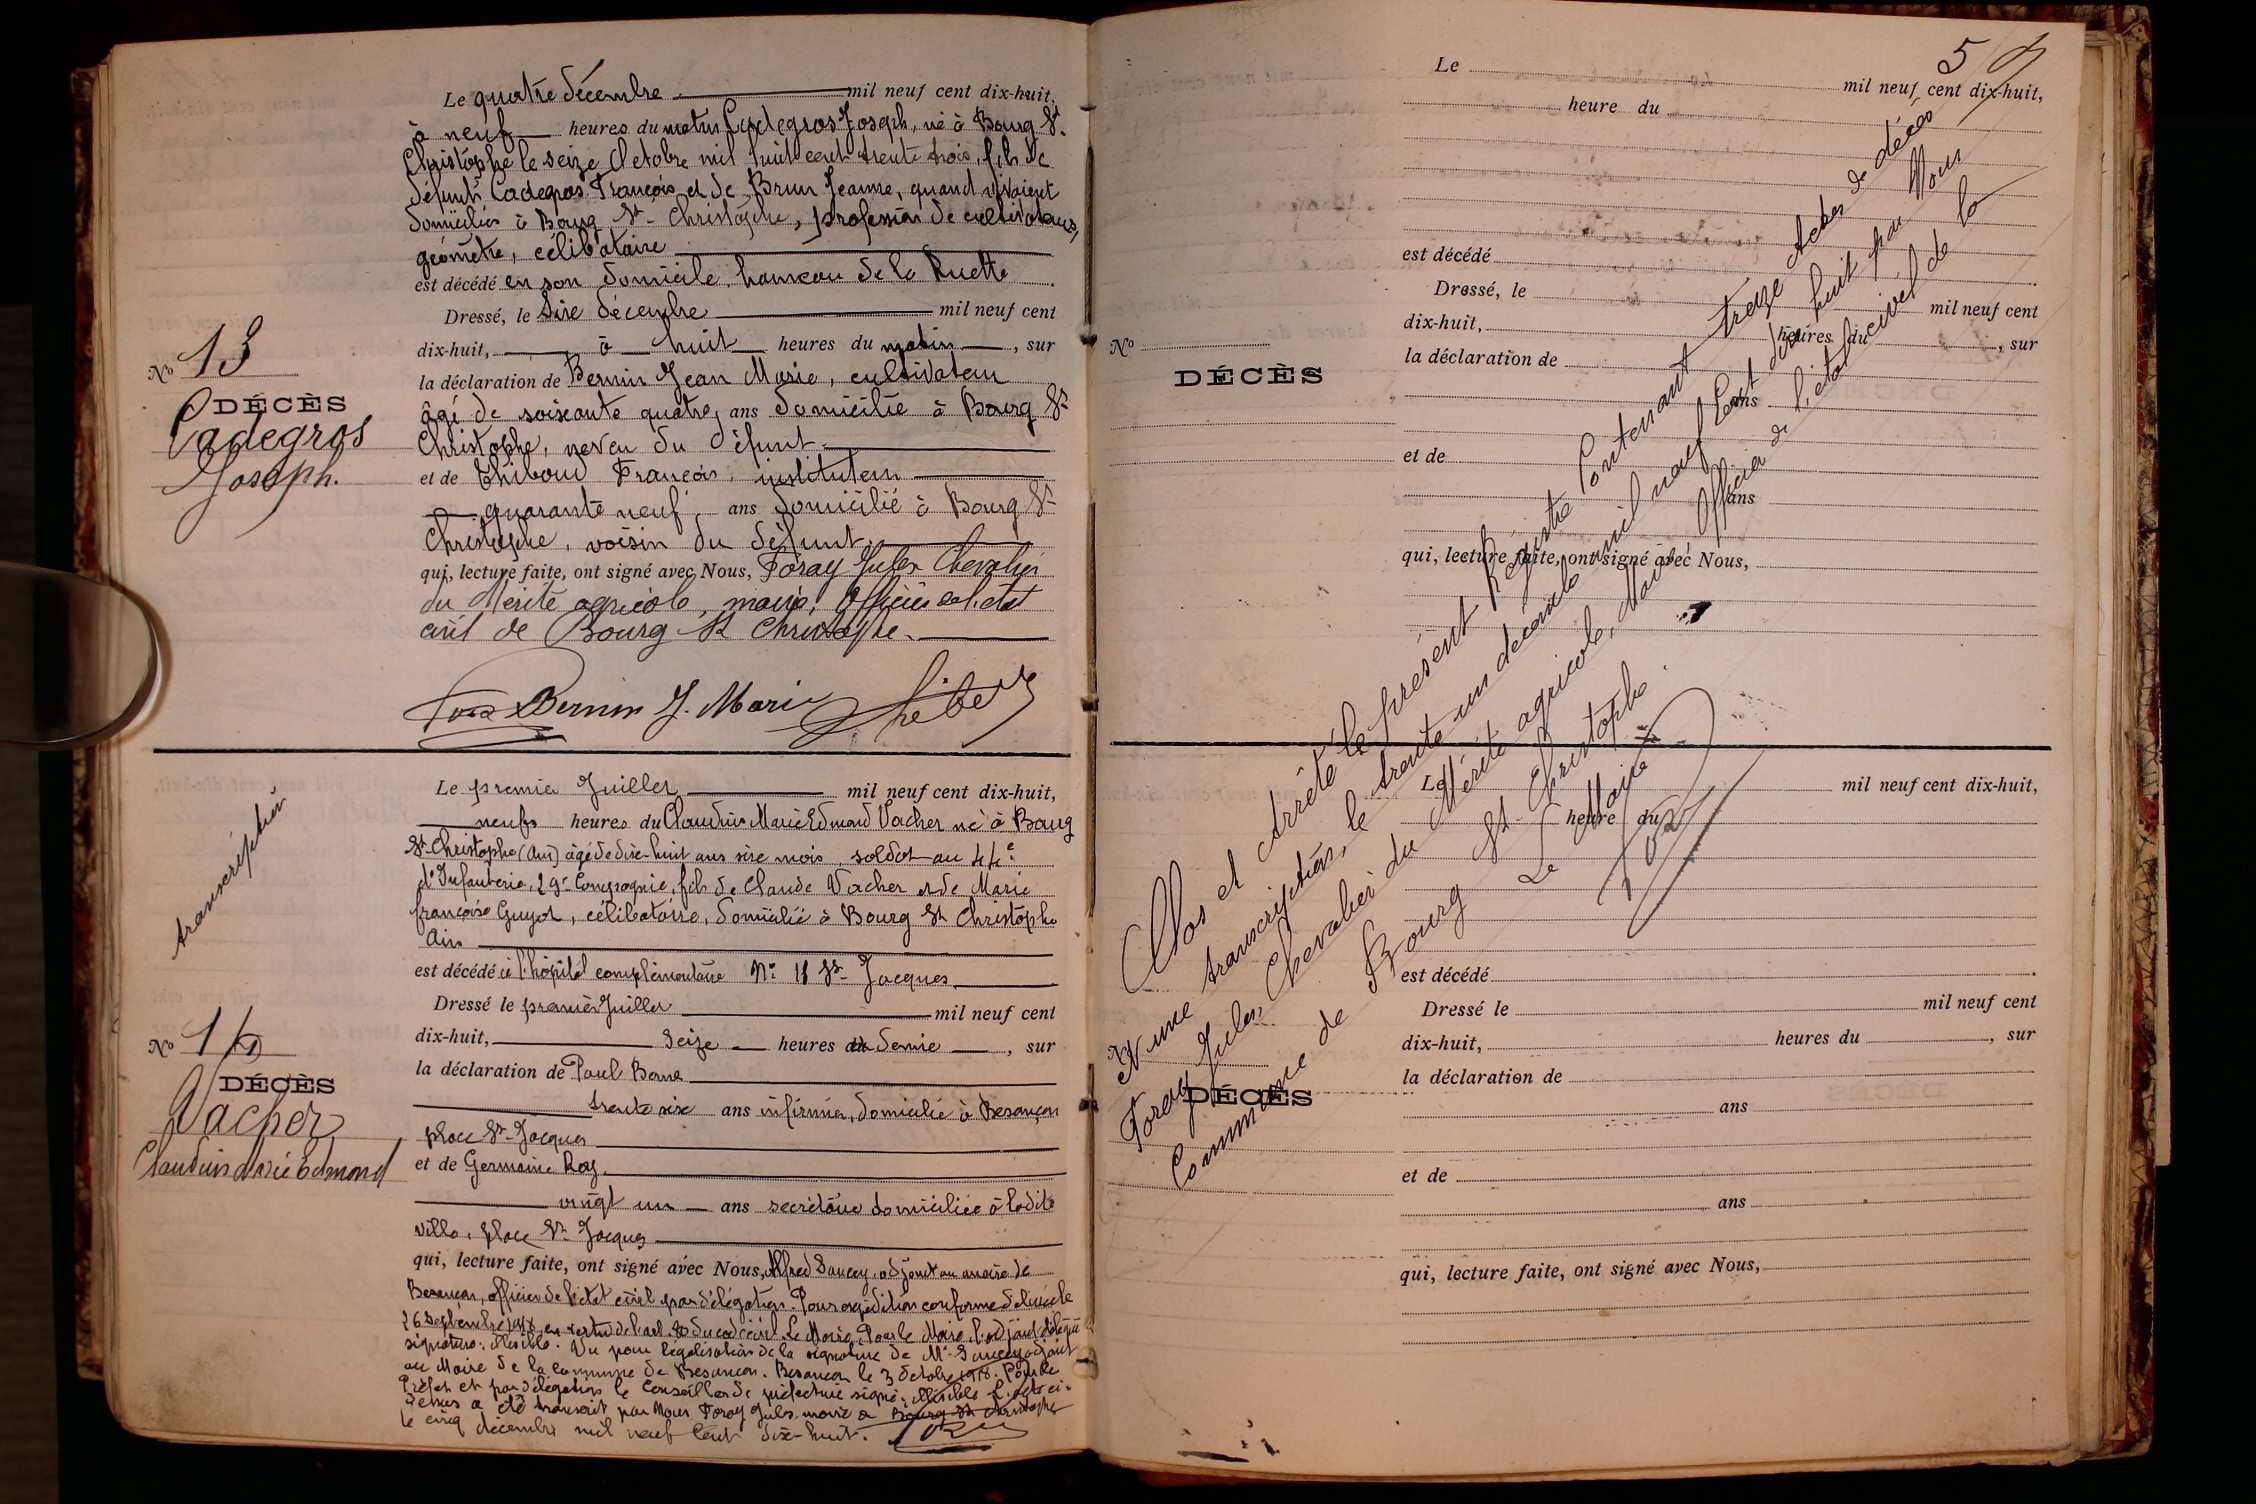 Le quatre décembre mil neuf cent dix-huit,
à neuf heures du matin Cadegros Joseph, né à Bourg St
Christophe le seize Octobre mil huit cent trente trois, fils de
défunts Cadegros François et de Brun Jeanne, quand vivaient
domiciliés à Bourg St-Christophe, profession de cultivateur,
géomètre, célibataire
est décédé en son domicile, hameau de la Ruette.
Dressé, le dixe décembre mil neuf cent
dix-huit, à huit heures du matin, sur
la déclaration de Bernin Jean Marie, cultivateur
âgé de soixante quatre, ans domicilié à Bourg St
Christophe, neveu du défunt.
et de Thiboud François, instituteur
quarante neuf, ans domicilié à Bourg St
Christophe, voisin du défunt.
qui, lecture faite, ont signé avec Nous, Foray Jules Chevalier
du Mérite agricole, maire, Officier de l'état
civil de Bourg St Christophe.
Bernin J. Marie
No 13
DÉCÈS
Cadegros
Joseph.
transcription
Le premier Juillet mil neuf cent dix-huit,
neufs heures du Claudius Marie Edmond Vacher né à Bourg
St-Christophe (Ain) âgé de dix-huit ans six mois, soldat au 44e
d'Infanterie, 29e Compagnie, fils de Claude Vacher et de Marie
françoise Guyot, célibataire, domicilié à Bourg St Christophe
Ain
est décédé à l'hôpital complémentaire No 11 St-Jacques.
Dressé le premier Juillet mil neuf cent
dix-huit, seize heures et demie, sur
la déclaration de Paul Berne
trente six ans infirmier, domicilié à Besançon
place St-Jacques
et de Germaine Roy.
vingt un ans secrétaire domiciliée à ladite
ville, place St-Jacques
qui, lecture faite, ont signé avec Nous, Alfred Saucey, adjoint au maire de
Besançon, officier de l'état civil par délégation. Pour expédition conforme délivrée le
26 Septembre 1918 en vertu de l'art. 80 du code civil. Le Maire, Pour le Maire, l'adjoint délégué
signature: illisible. Vu pour légalisation de la signature de Mr Saucey adjoint
au Maire de la commune de Besançon. Besançon le 3 Octobre 1918. Pour le
Préfet et par délégation le Conseiller de préfecture signé: illisible. L'acte ci-
dessus a été transcrit par Nous Foray Jules maire de Bourg St Christophe
le cinq décembre mil neuf cent dix-huit.
No 14
DÉCÈS
Vacher
Claudius Marie Edmond
5
Le mil neuf cent dix-huit,
heure du
est décédé
Dressé, le mil neuf cent
dix-huit, heures du , sur
la déclaration de
ans
et de
ans
qui, lecture faite, ont signé avec Nous,
No
DÉCÈS
Clos et Arrêté le présent Registre Contenant treize Actes de décès
& une transcription, le trente un décembre mil neuf Cent dix huit par Nous
Foray Jules, Chevalier du Mérite agricole, Maire, Officier de l'état civil de la
Commune de Bourg St-Christophe.
Le Maire
Le mil neuf cent dix-huit,
heure du
est décédé
Dressé le mil neuf cent
dix-huit, heures du , sur
la déclaration de
ans
et de
ans
qui, lecture faite, ont signé avec Nous,
No
DÉCÈS